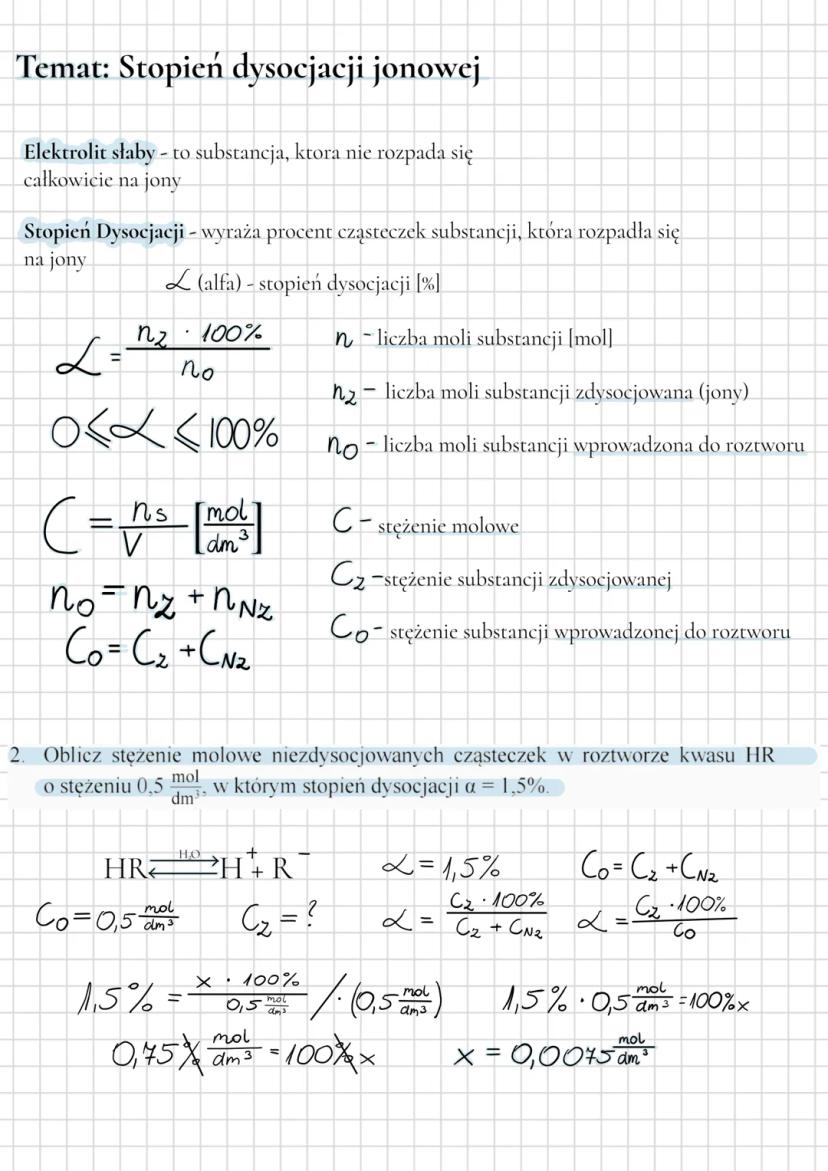 Temat: Stopień dysocjacji jonowej
Elektrolit słaby - to substancja, ktora nie rozpada się
całkowicie na jony
Stopień Dysocjacji - wyraża procent cząsteczek substancji, która rozpadła się
na jony
α (alfa) - stopień dysocjacji [%]
α = nz · 100% / no
n - liczba moli substancji [mol]
nz - liczba moli substancji zdysocjowana (jony)
0 ⩽ α ⩽ 100%
no - liczba moli substancji wprowadzona do roztworu
C = ns / V [mol/dm³]
C - stężenie molowe
no = nz + nNz
Cz - stężenie substancji zdysocjowanej
Co = Cz + CNz
Co - stężenie substancji wprowadzonej do roztworu
2. Oblicz stężenie molowe niezdysocjowanych cząsteczek w roztworze kwasu HR
o stężeniu 0,5 mol/dm³, w którym stopień dysocjacji α = 1,5%.
HR ⇄ H₂O H⁺ + R⁻ α = 1,5% Co = Cz + CNz
Co = 0,5 mol/dm³ Cz = ? α = Cz · 100% / Cz + CNz α = Cz · 100% / Co
1,5% = x · 100% / 0,5 mol/dm³ / · (0,5 mol/dm³) 1,5% · 0,5 mol/dm³ = 100% x
0,75% mol/dm³ = 100% x x = 0,0075 mol/dm³